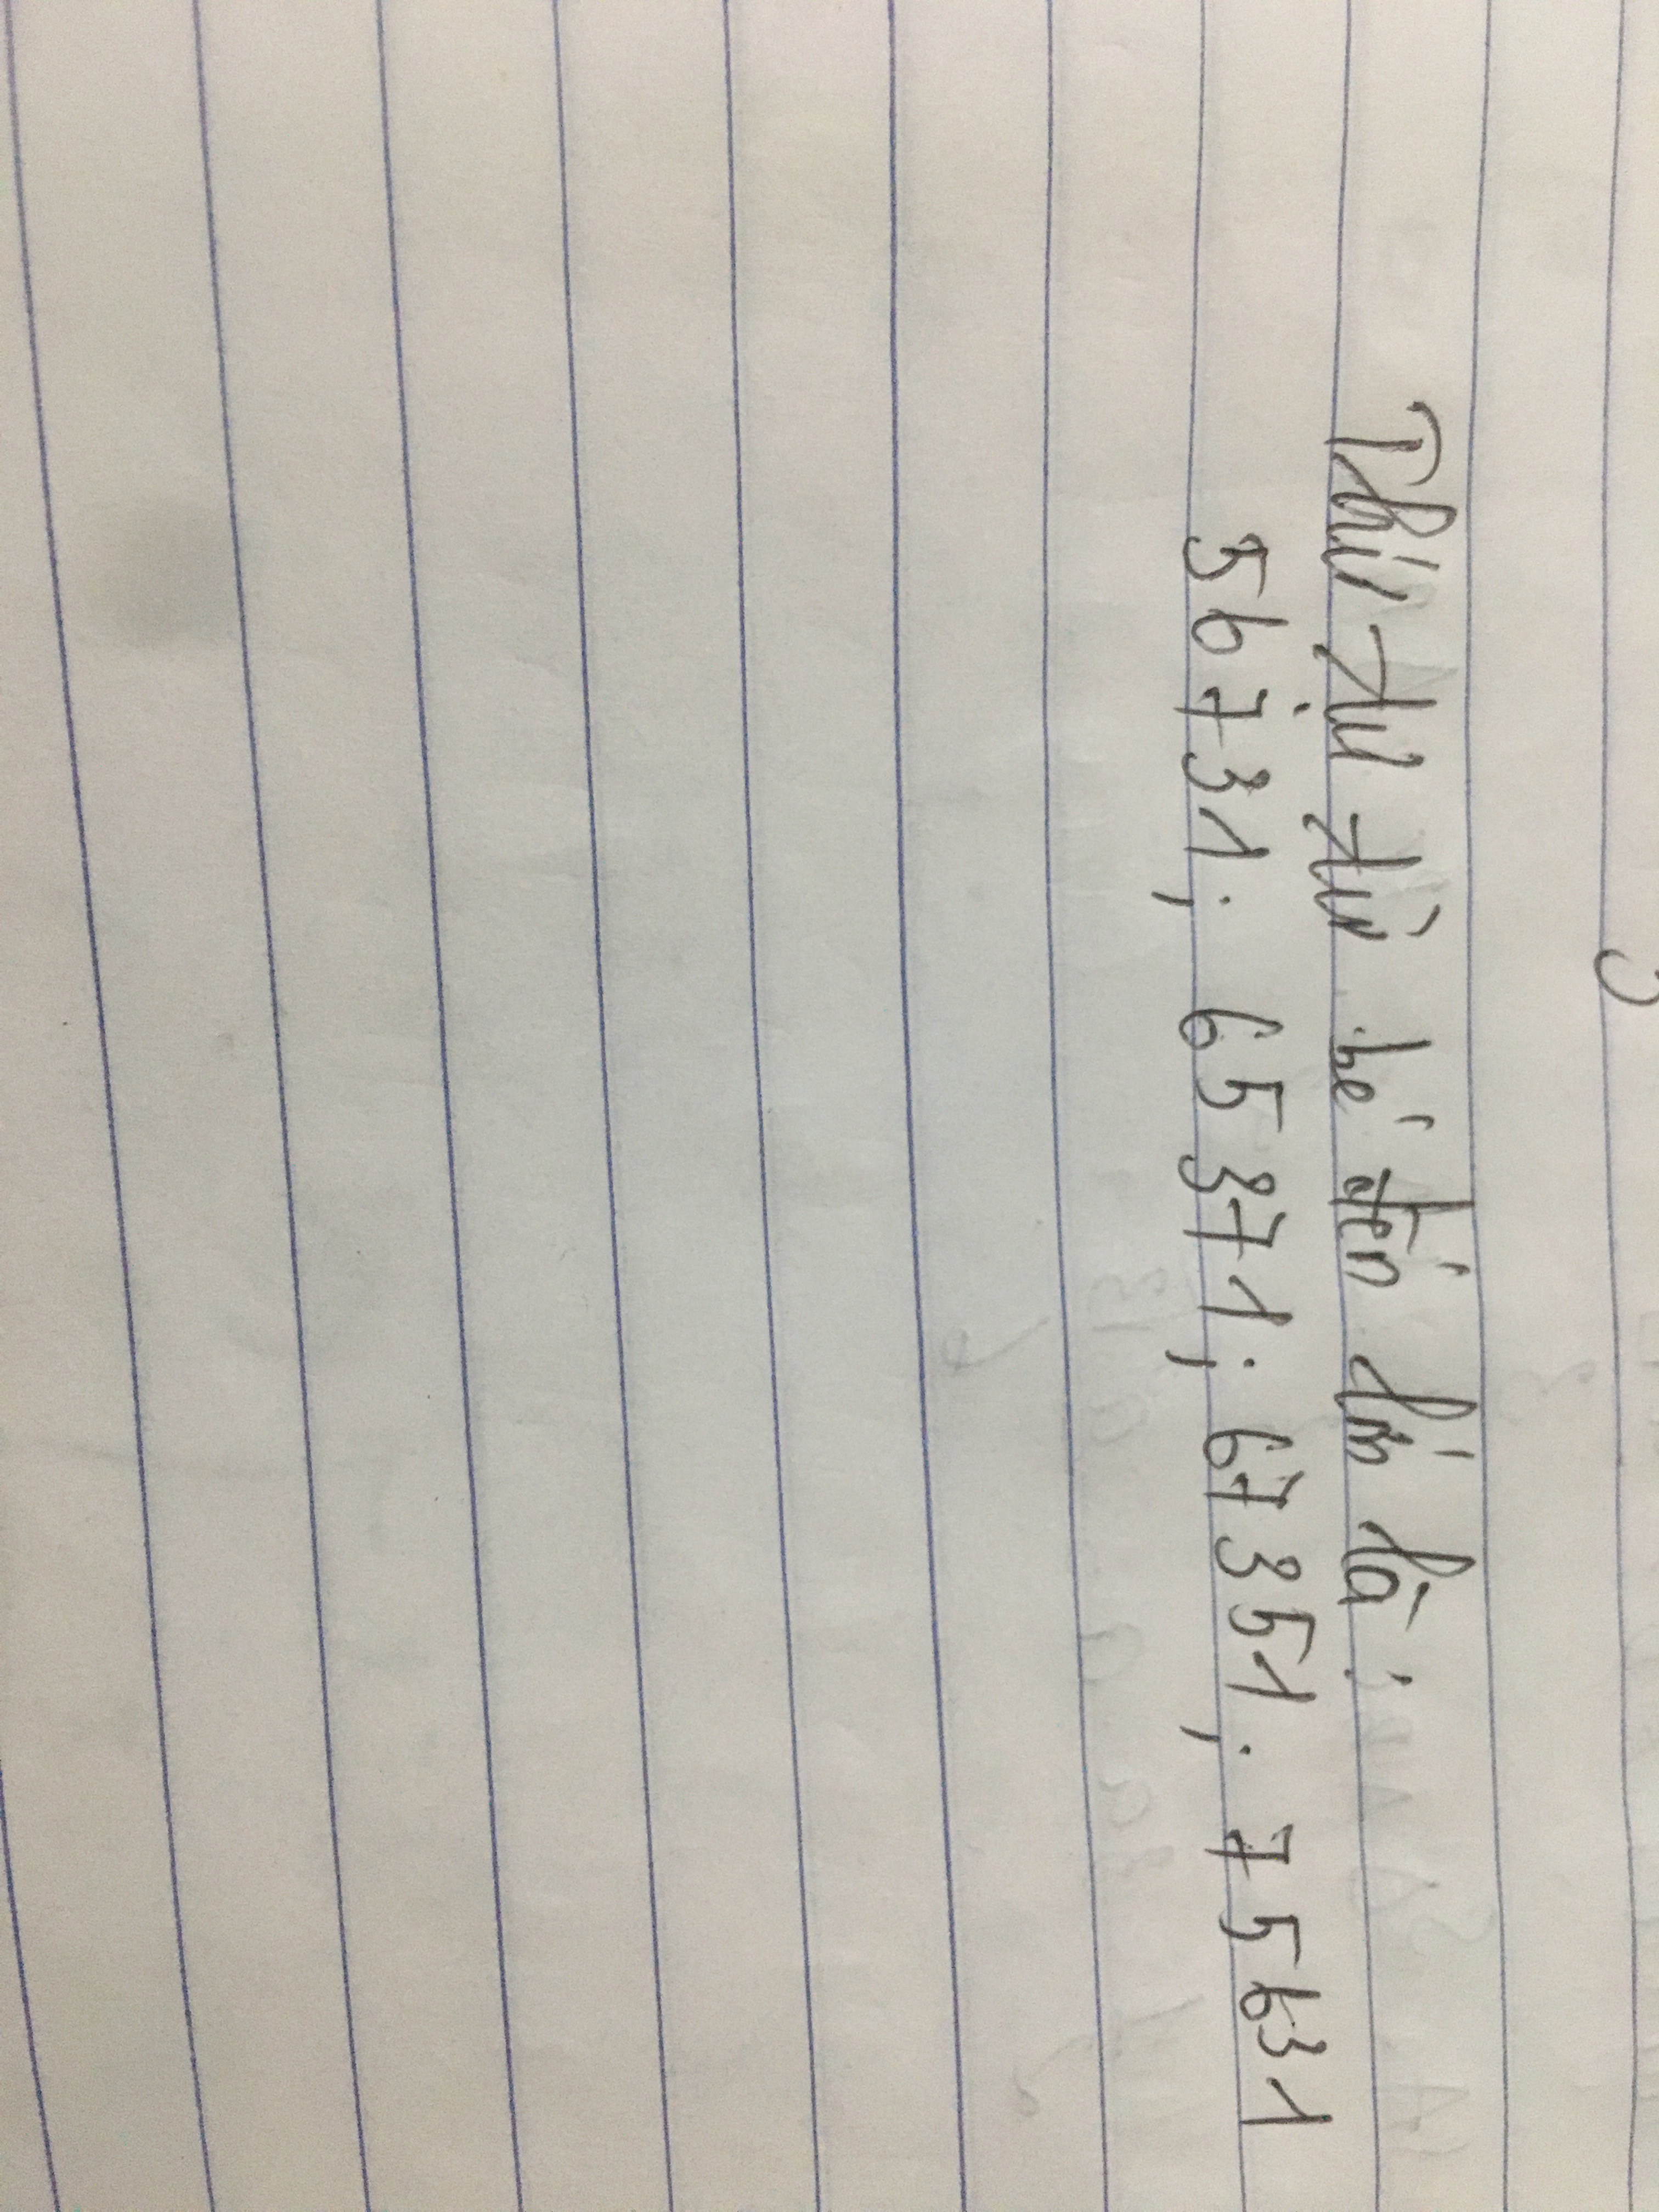 Thứ tự từ bé đến lớn là :
56731; 65371; 67351; 75631